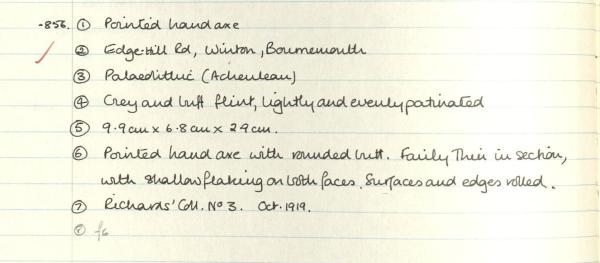 -856. ① Pointed handaxe
② Edge-Hill Rd, Winton, Bournemouth
③ Palaeolithic (Acheulean)
④ Grey and buff flint, lightly and evenly patinated
⑤ 9.9cm x 6.8cm x 2.9cm.
⑥ Pointed hand axe with rounded butt. Fairly Thin in section,
with shallow flaking on both faces. Surfaces and edges rolled.
⑦ Richards' Coll. No 3. Oct. 1919.